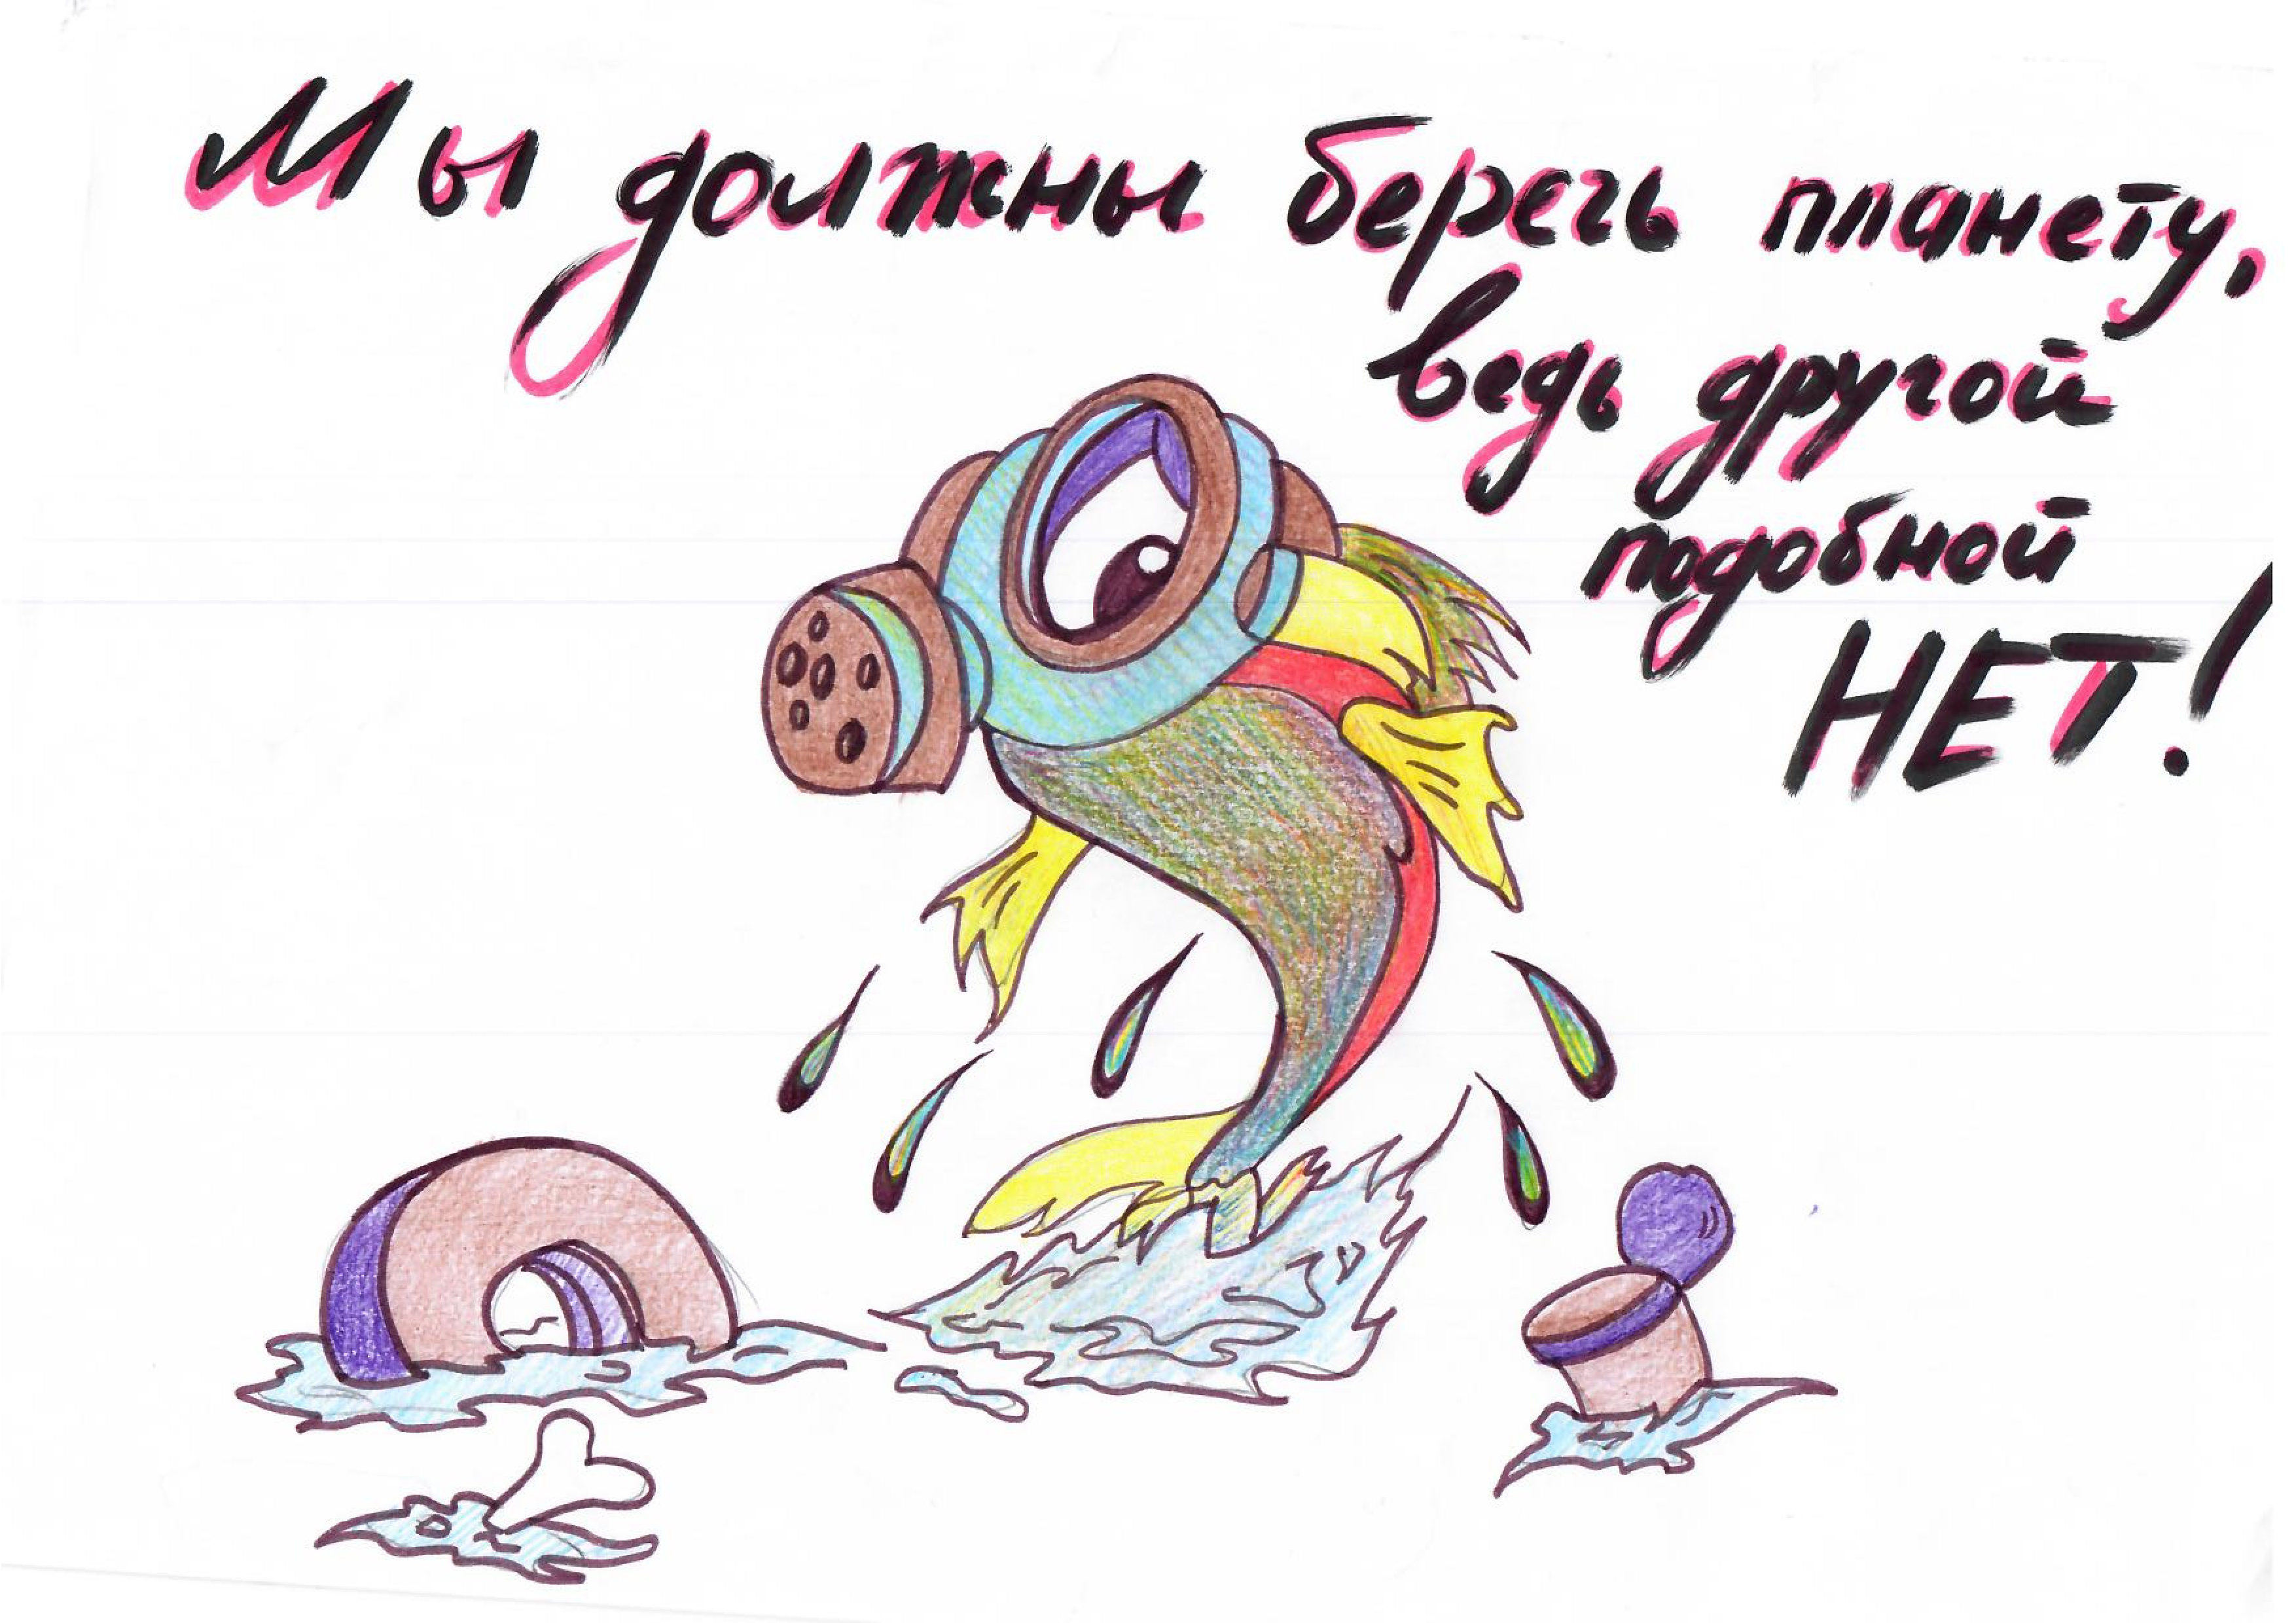 Мы должны беречь планету,
ведь другой
подобной
НЕТ!